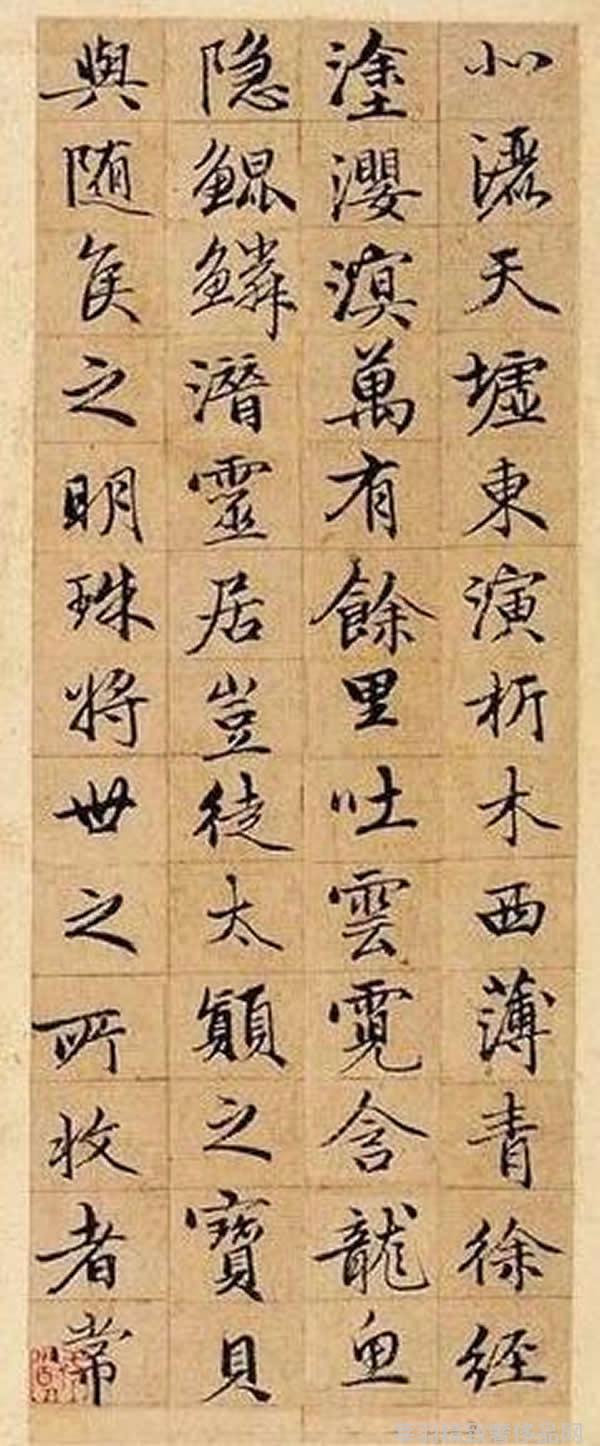 北灑天墟東演析木西薄青徐經
塗瀴溟萬有餘里吐雲霓含龍魚
隐鯤鱗潛靈居豈徒太顛之寶貝
與随侯之明珠將世之所收者常